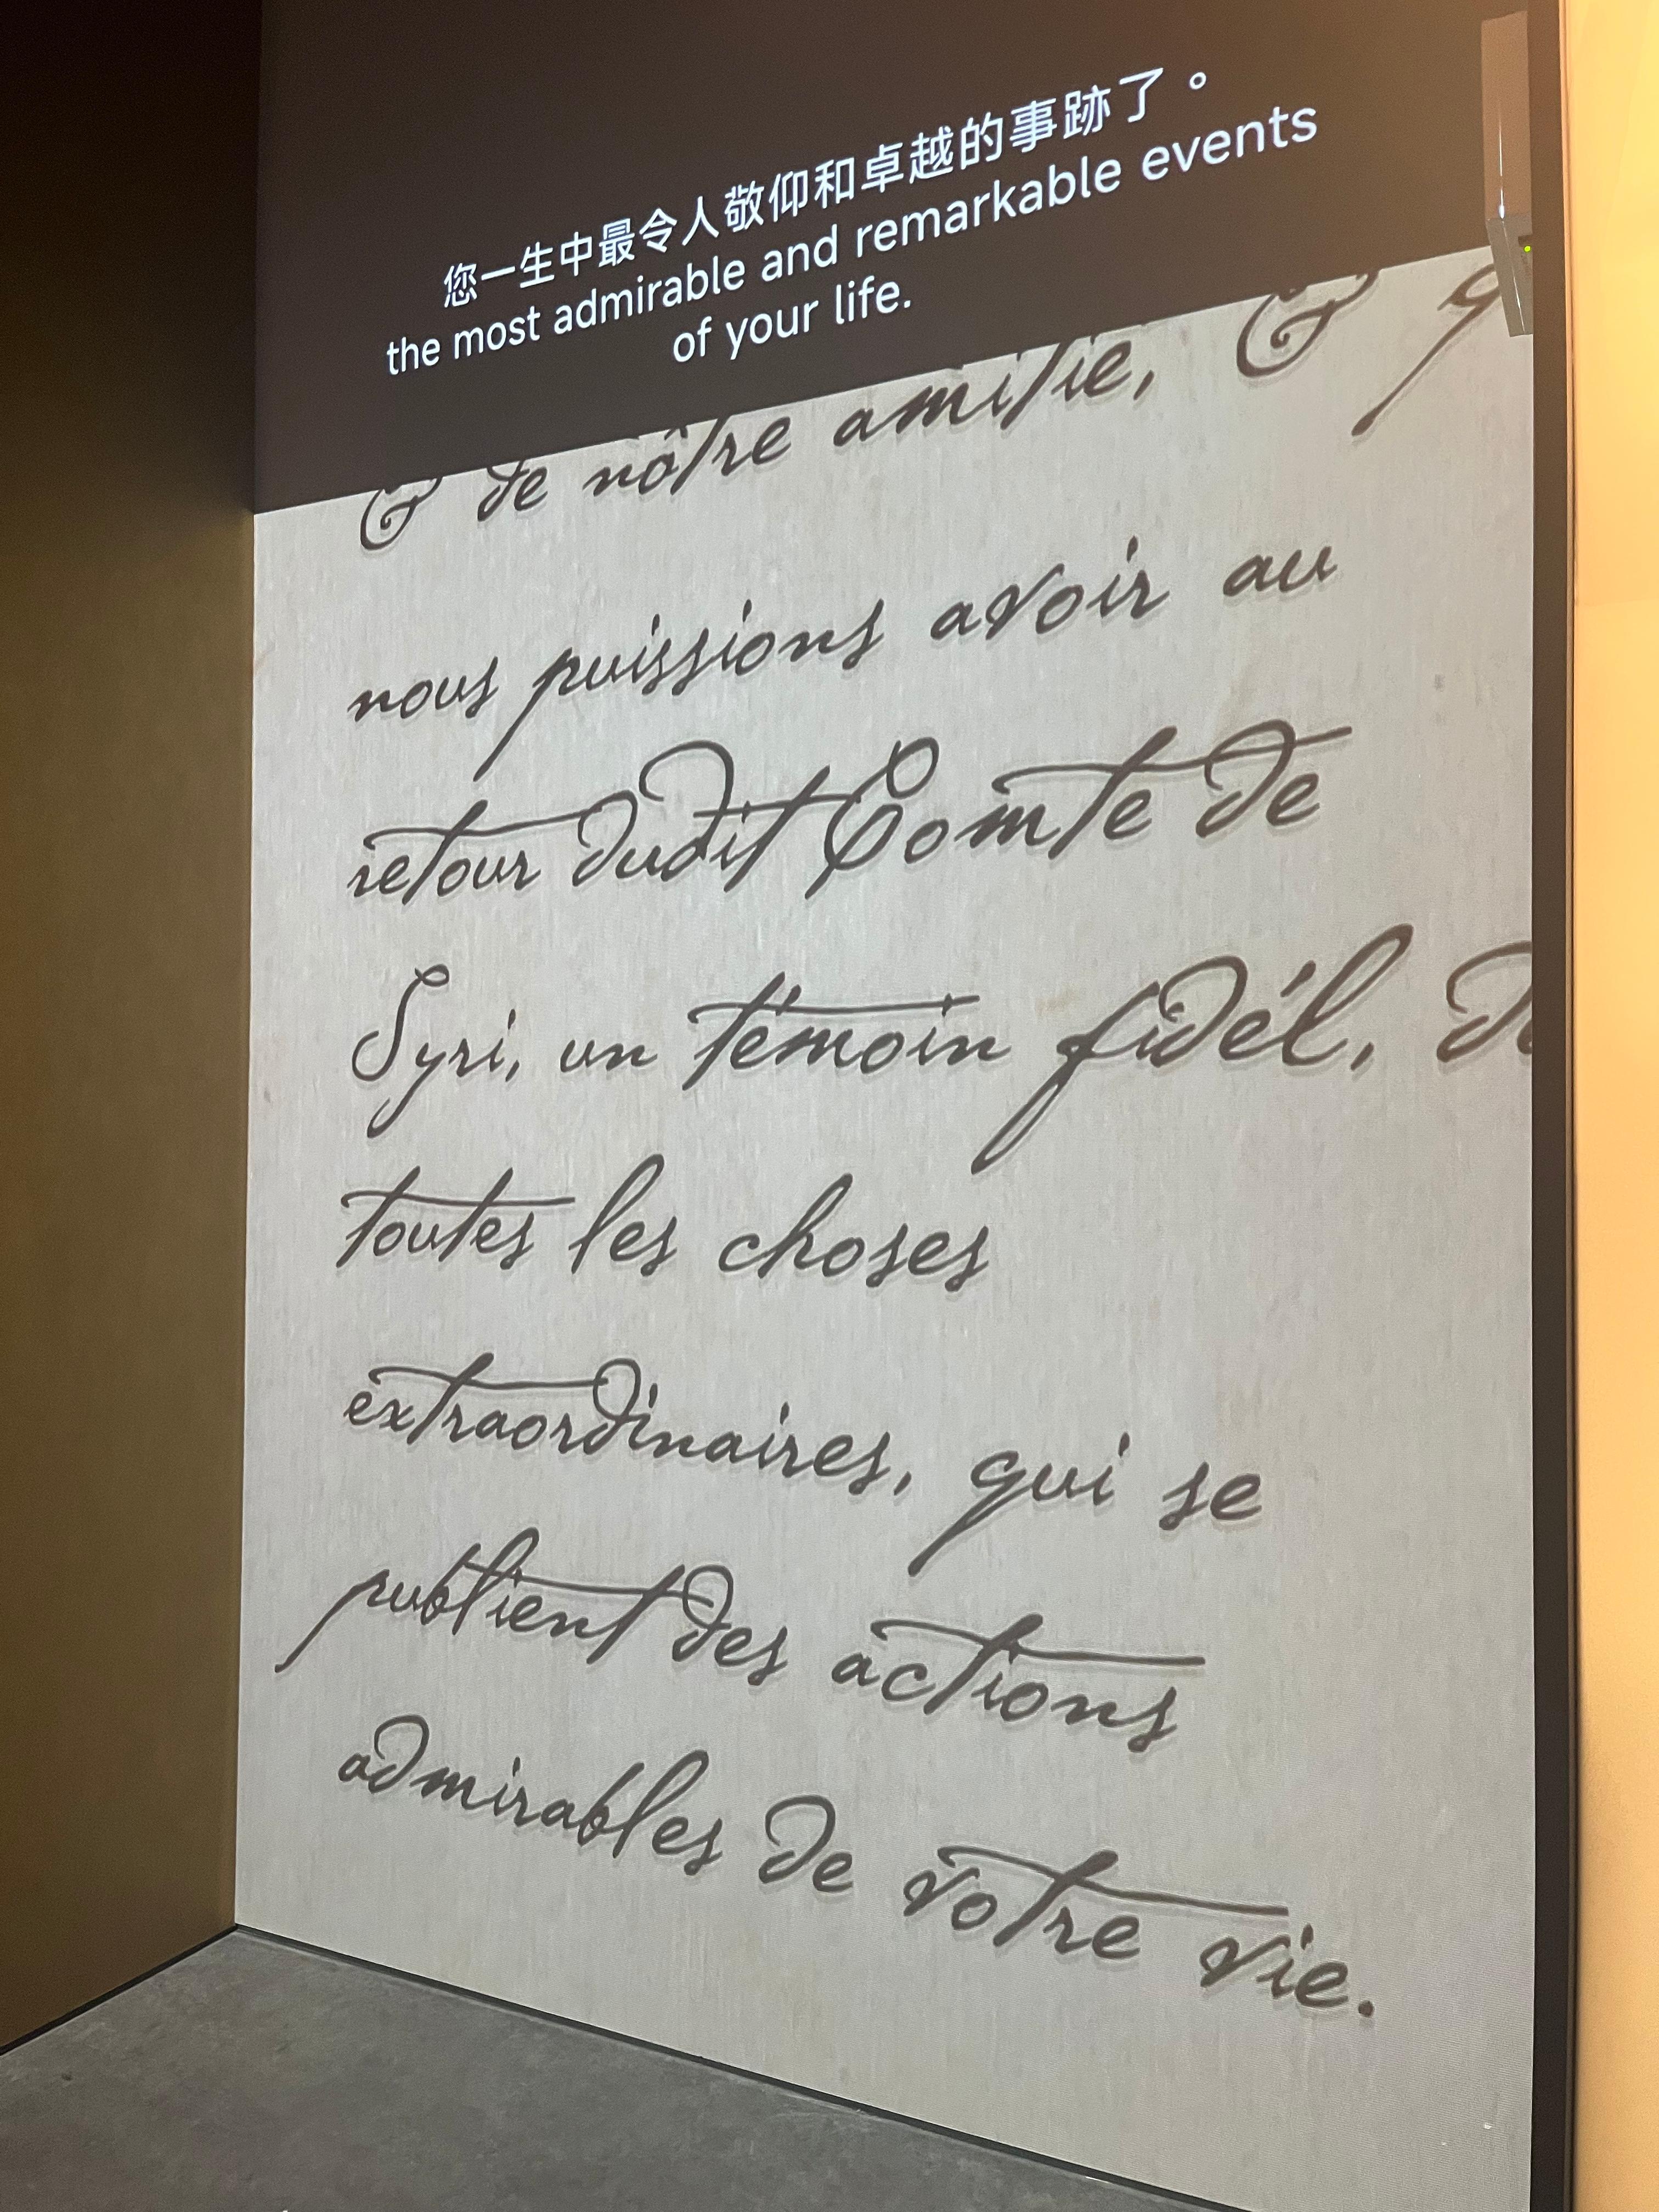 您一生中最令人敬仰和卓越的事跡了。
the most admirable and remarkable events
of your life.
& de nôtre amitie, &
nous puissions avoir au
retour dudit Comte de
Syri, un témoin fidél,
toutes les choses
extraordinaires, qui se
publient des actions
admirables de votre vie.